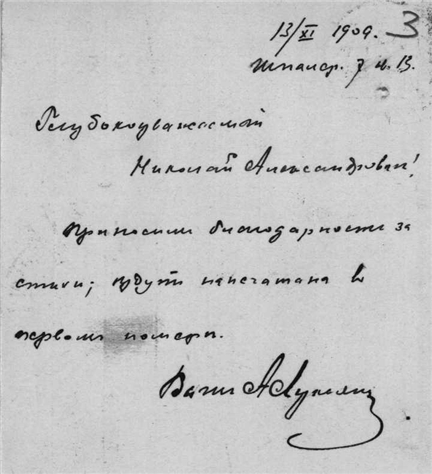 13/XI 1909. 3
Шпалер. 7 кв. 13.
Глубокоуважаемый
Николай Александрович!
Приносим благодарность за
стихи; будут напечатаны в
первом номере.
Ваш А